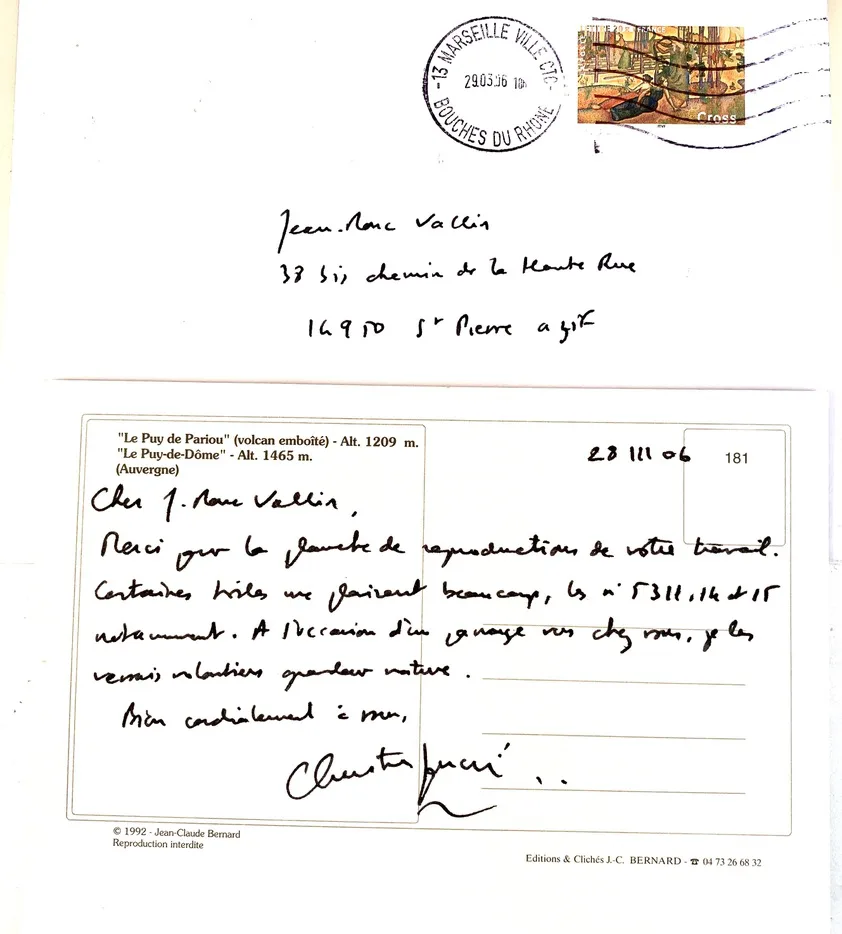 -13 MARSEILLE VILLE CTC-
29.03.06
BOUCHES DU RHONE
Cross
Jean-Marc Vallin
38 bis chemin de la Haute Rue
14950 St Pierre azif
"Le Puy de Pariou" (volcan emboîté) - Alt. 1209 m.
"Le Puy-de-Dôme" - Alt. 1465 m.
(Auvergne)
28 III 06
181
Cher J. Marc Vallin,
Merci pour la planche de reproductions de votre travail.
Certaines toiles me plaisent beaucoup, les n° 5 3 11, 14 et 15
notamment. A l'occasion d'un passage vers chez vous, je les
verrais volontiers grandeur nature.
Bien cordialement à vous,
© 1992 - Jean-Claude Bernard
Reproduction interdite
Editions & Clichés J.-C. BERNARD - ☎ 04 73 26 68 32